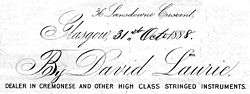 Lansdowne Crescent,
Glasgow, 31st Oct 1888.
By David Laurie,
DEALER IN CREMONESE AND OTHER HIGH CLASS STRINGED INSTRUMENTS